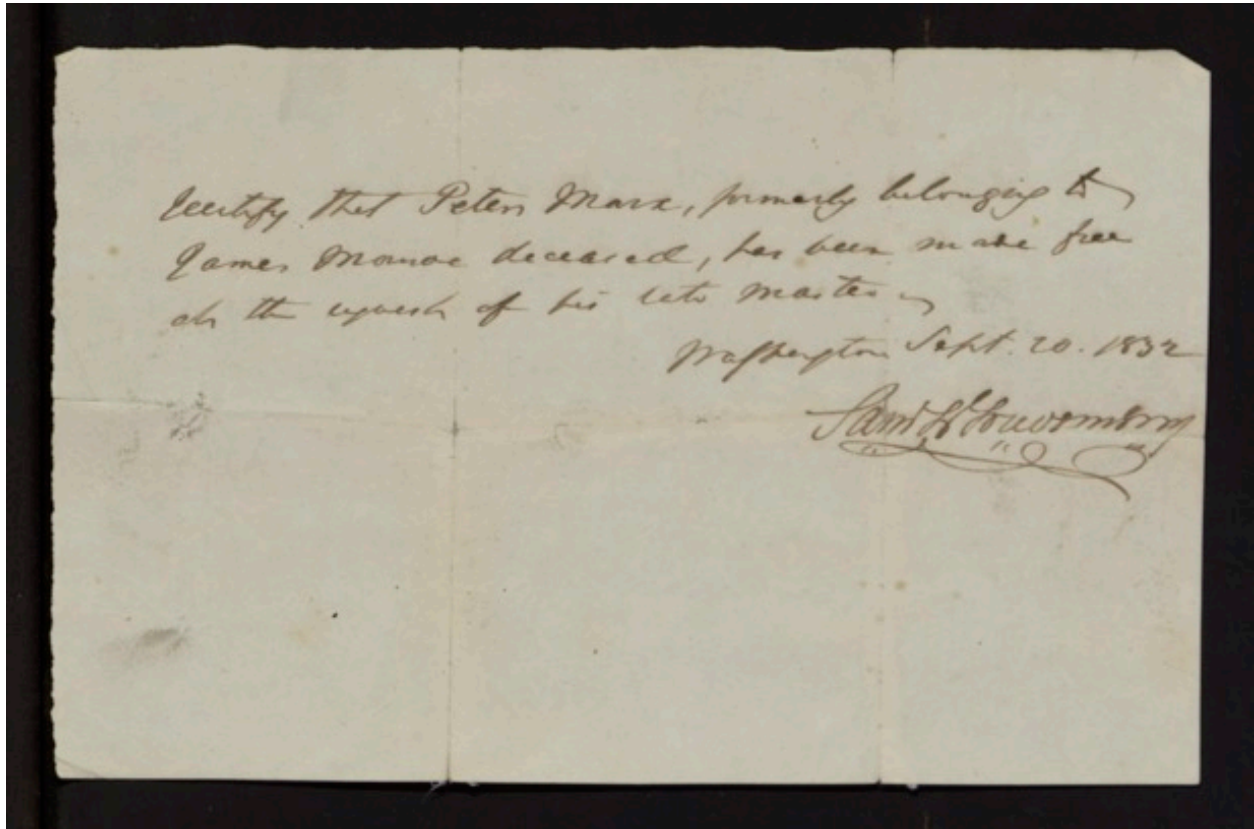 I certify that Peter Marx, formerly belonging to
James Monroe deceased, has been made free
at the request of his late master
Washington Sept. 20. 1832
Saml L Gouverneur